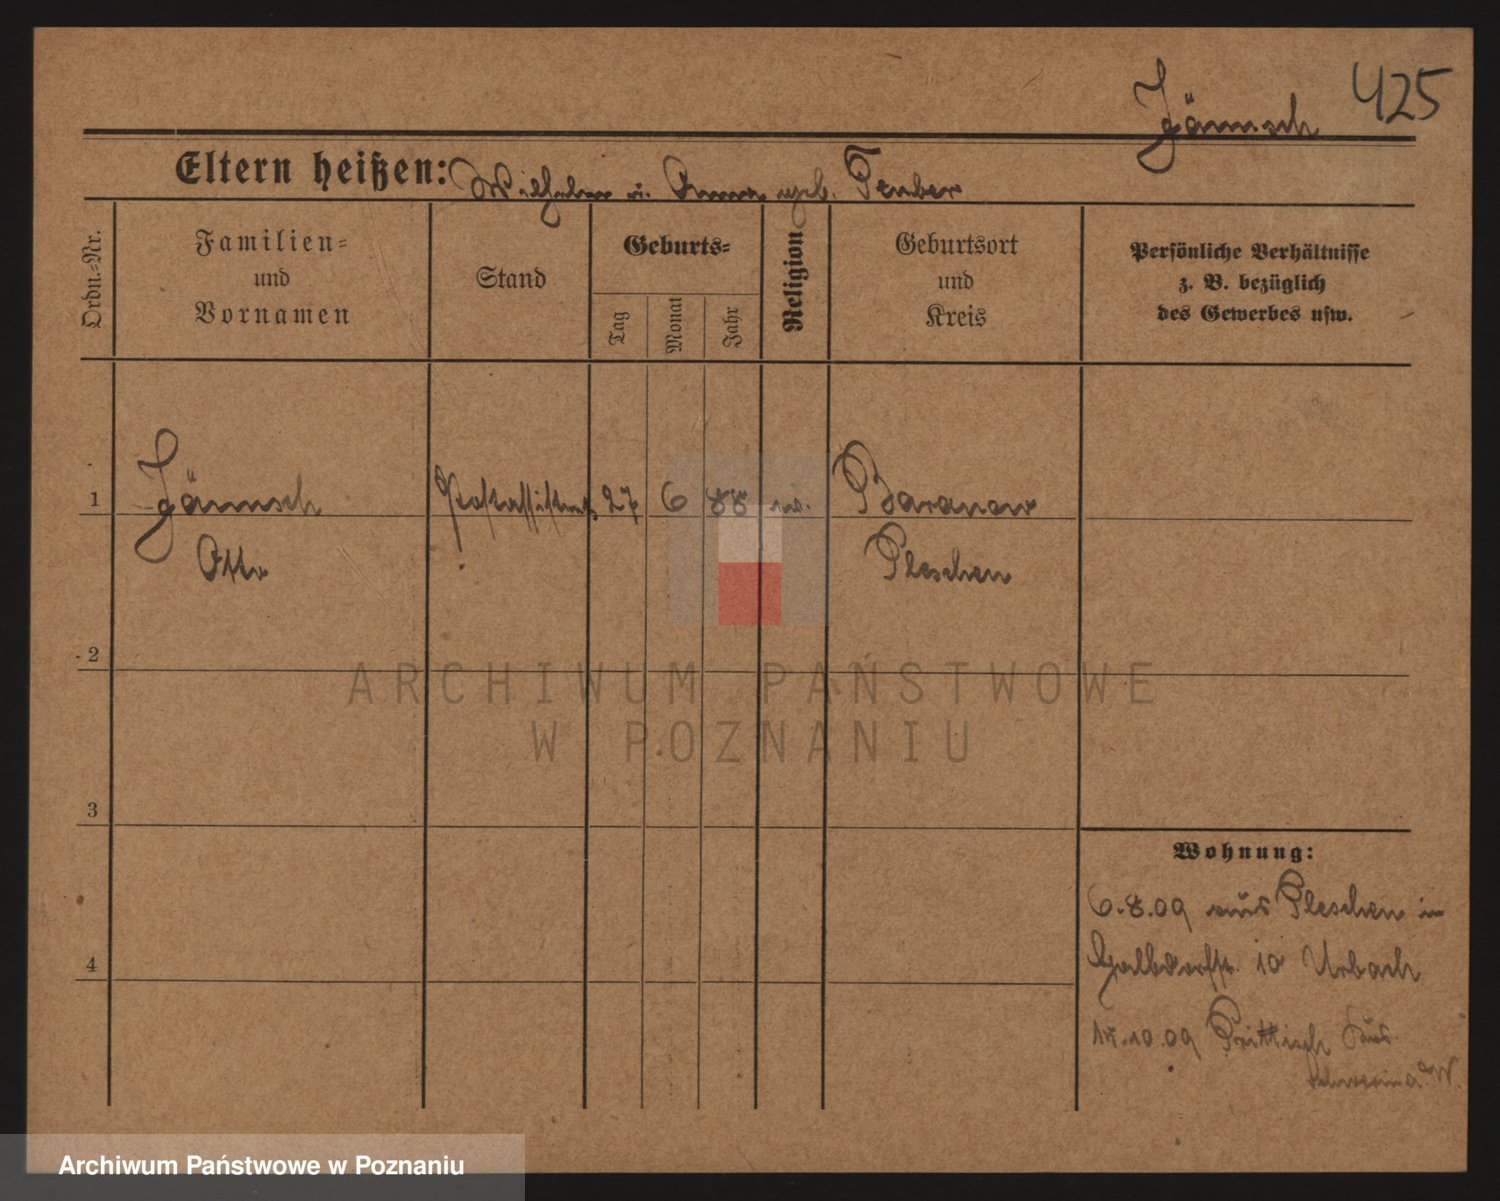 425
Jämsch
Eltern heißen: Wilhelm u. Anna geb. Teuber
Ordn.=Nr.
Familien=
und
Vornamen
Stand
Geburts=
Tag
Monat
Jahr
Religion
Geburtsort
und
Kreis
Persönliche Verhältnisse
z. B. bezüglich
des Gewerbes usw.
1 Jämsch Postassistent 27 6 88 Baranow
Otto Pleschen
2
3
4
Wohnung:
6.8.09 aus Pleschen in
10 Urbach
10.09 Prittisch
Schwerin a. W.
ARCHIWUM PAŃSTWOWE
W POZNANIU
Archiwum Państwowe w Poznaniu